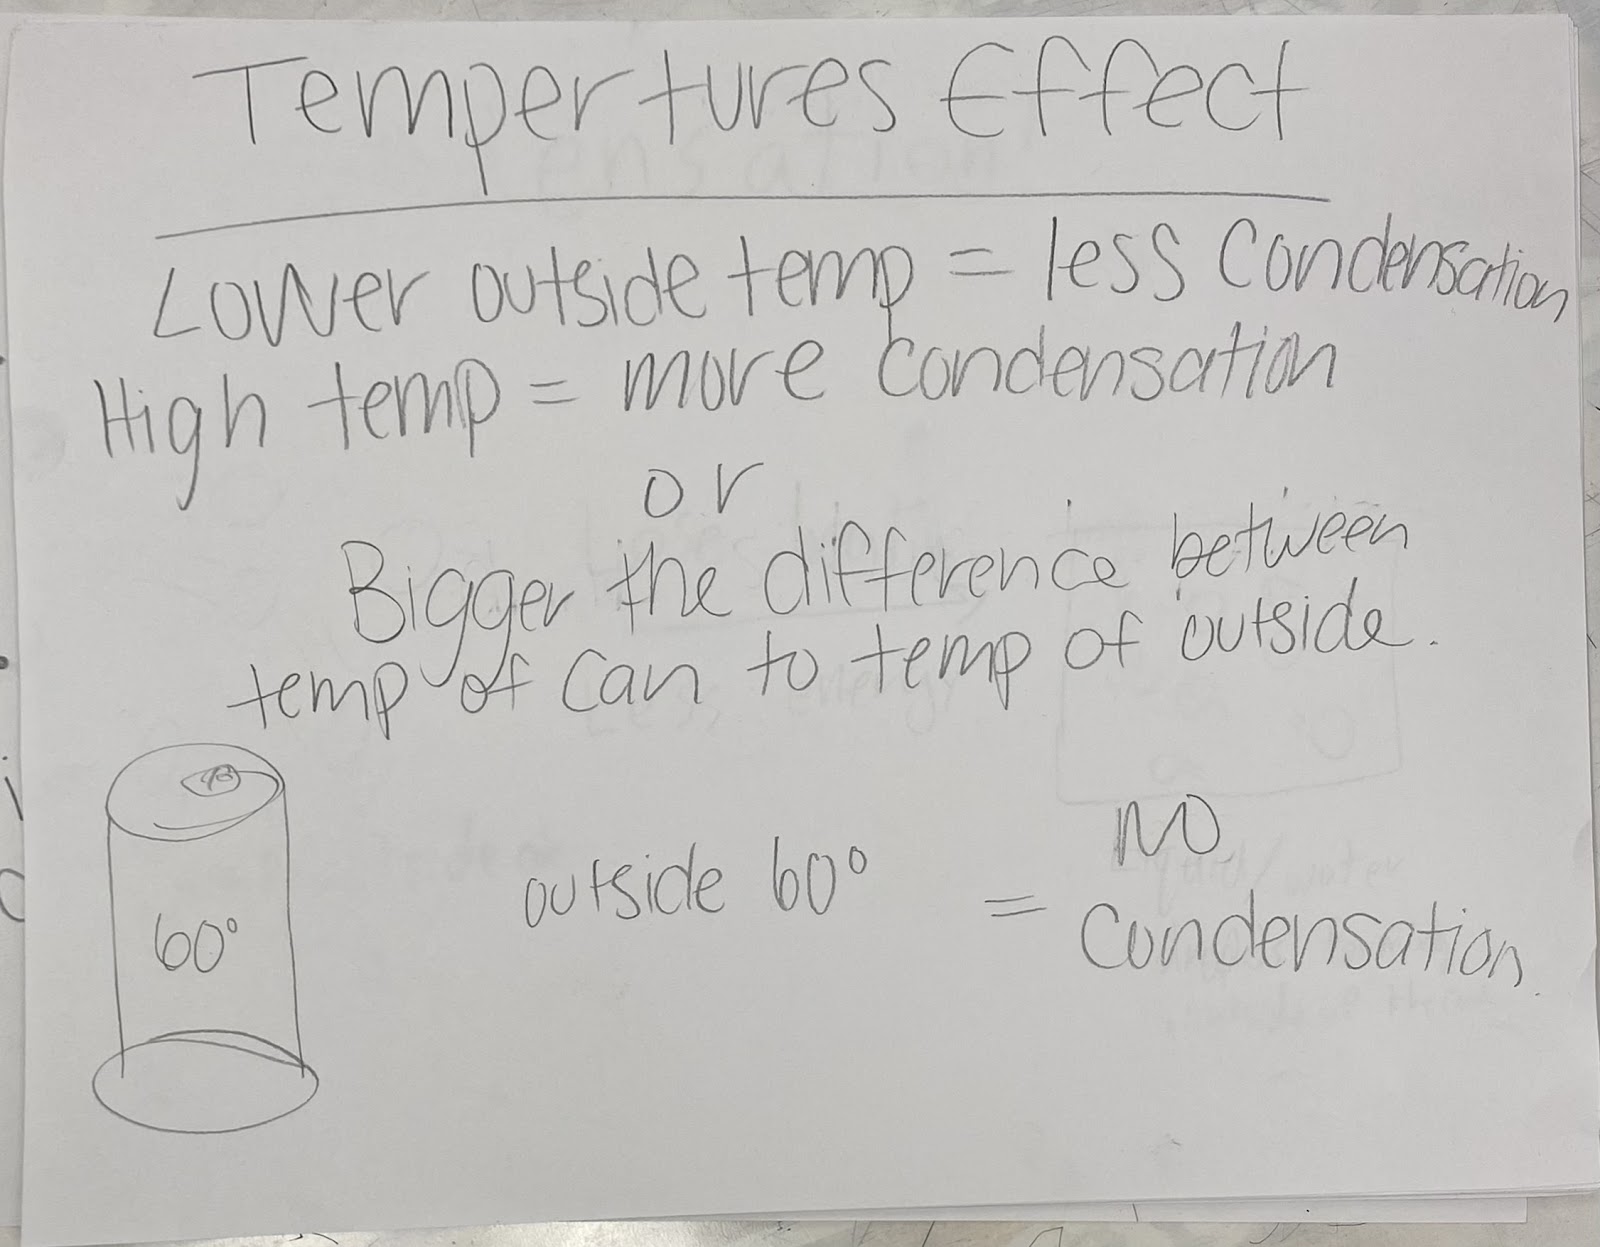 Tempertures Effect
Lower outside temp = less Condensation
High temp = more condensation
or
Bigger the difference between
temp of can to temp of outside.
60°
outside 60°
= NO
Condensation.